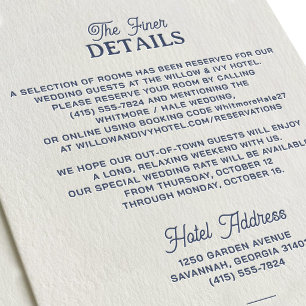 The Finer
DETAILS
A SELECTION OF ROOMS HAS BEEN RESERVED FOR OUR
WEDDING GUESTS AT THE WILLOW & IVY HOTEL.
PLEASE RESERVE YOUR ROOM BY CALLING
(415) 555-7824 AND MENTIONING THE
WHITMORE / HALE WEDDING,
OR ONLINE USING BOOKING CODE WhitmoreHale27
AT WILLOWANDIVYHOTEL.COM/RESERVATIONS
WE HOPE OUR OUT-OF-TOWN GUESTS WILL ENJOY
A LONG, RELAXING WEEKEND WITH US.
OUR SPECIAL WEDDING RATE WILL BE AVAILABLE
FROM THURSDAY, OCTOBER 12
THROUGH MONDAY, OCTOBER 16.
Hotel Address
1250 GARDEN AVENUE
SAVANNAH, GEORGIA 31401
(415) 555-7824